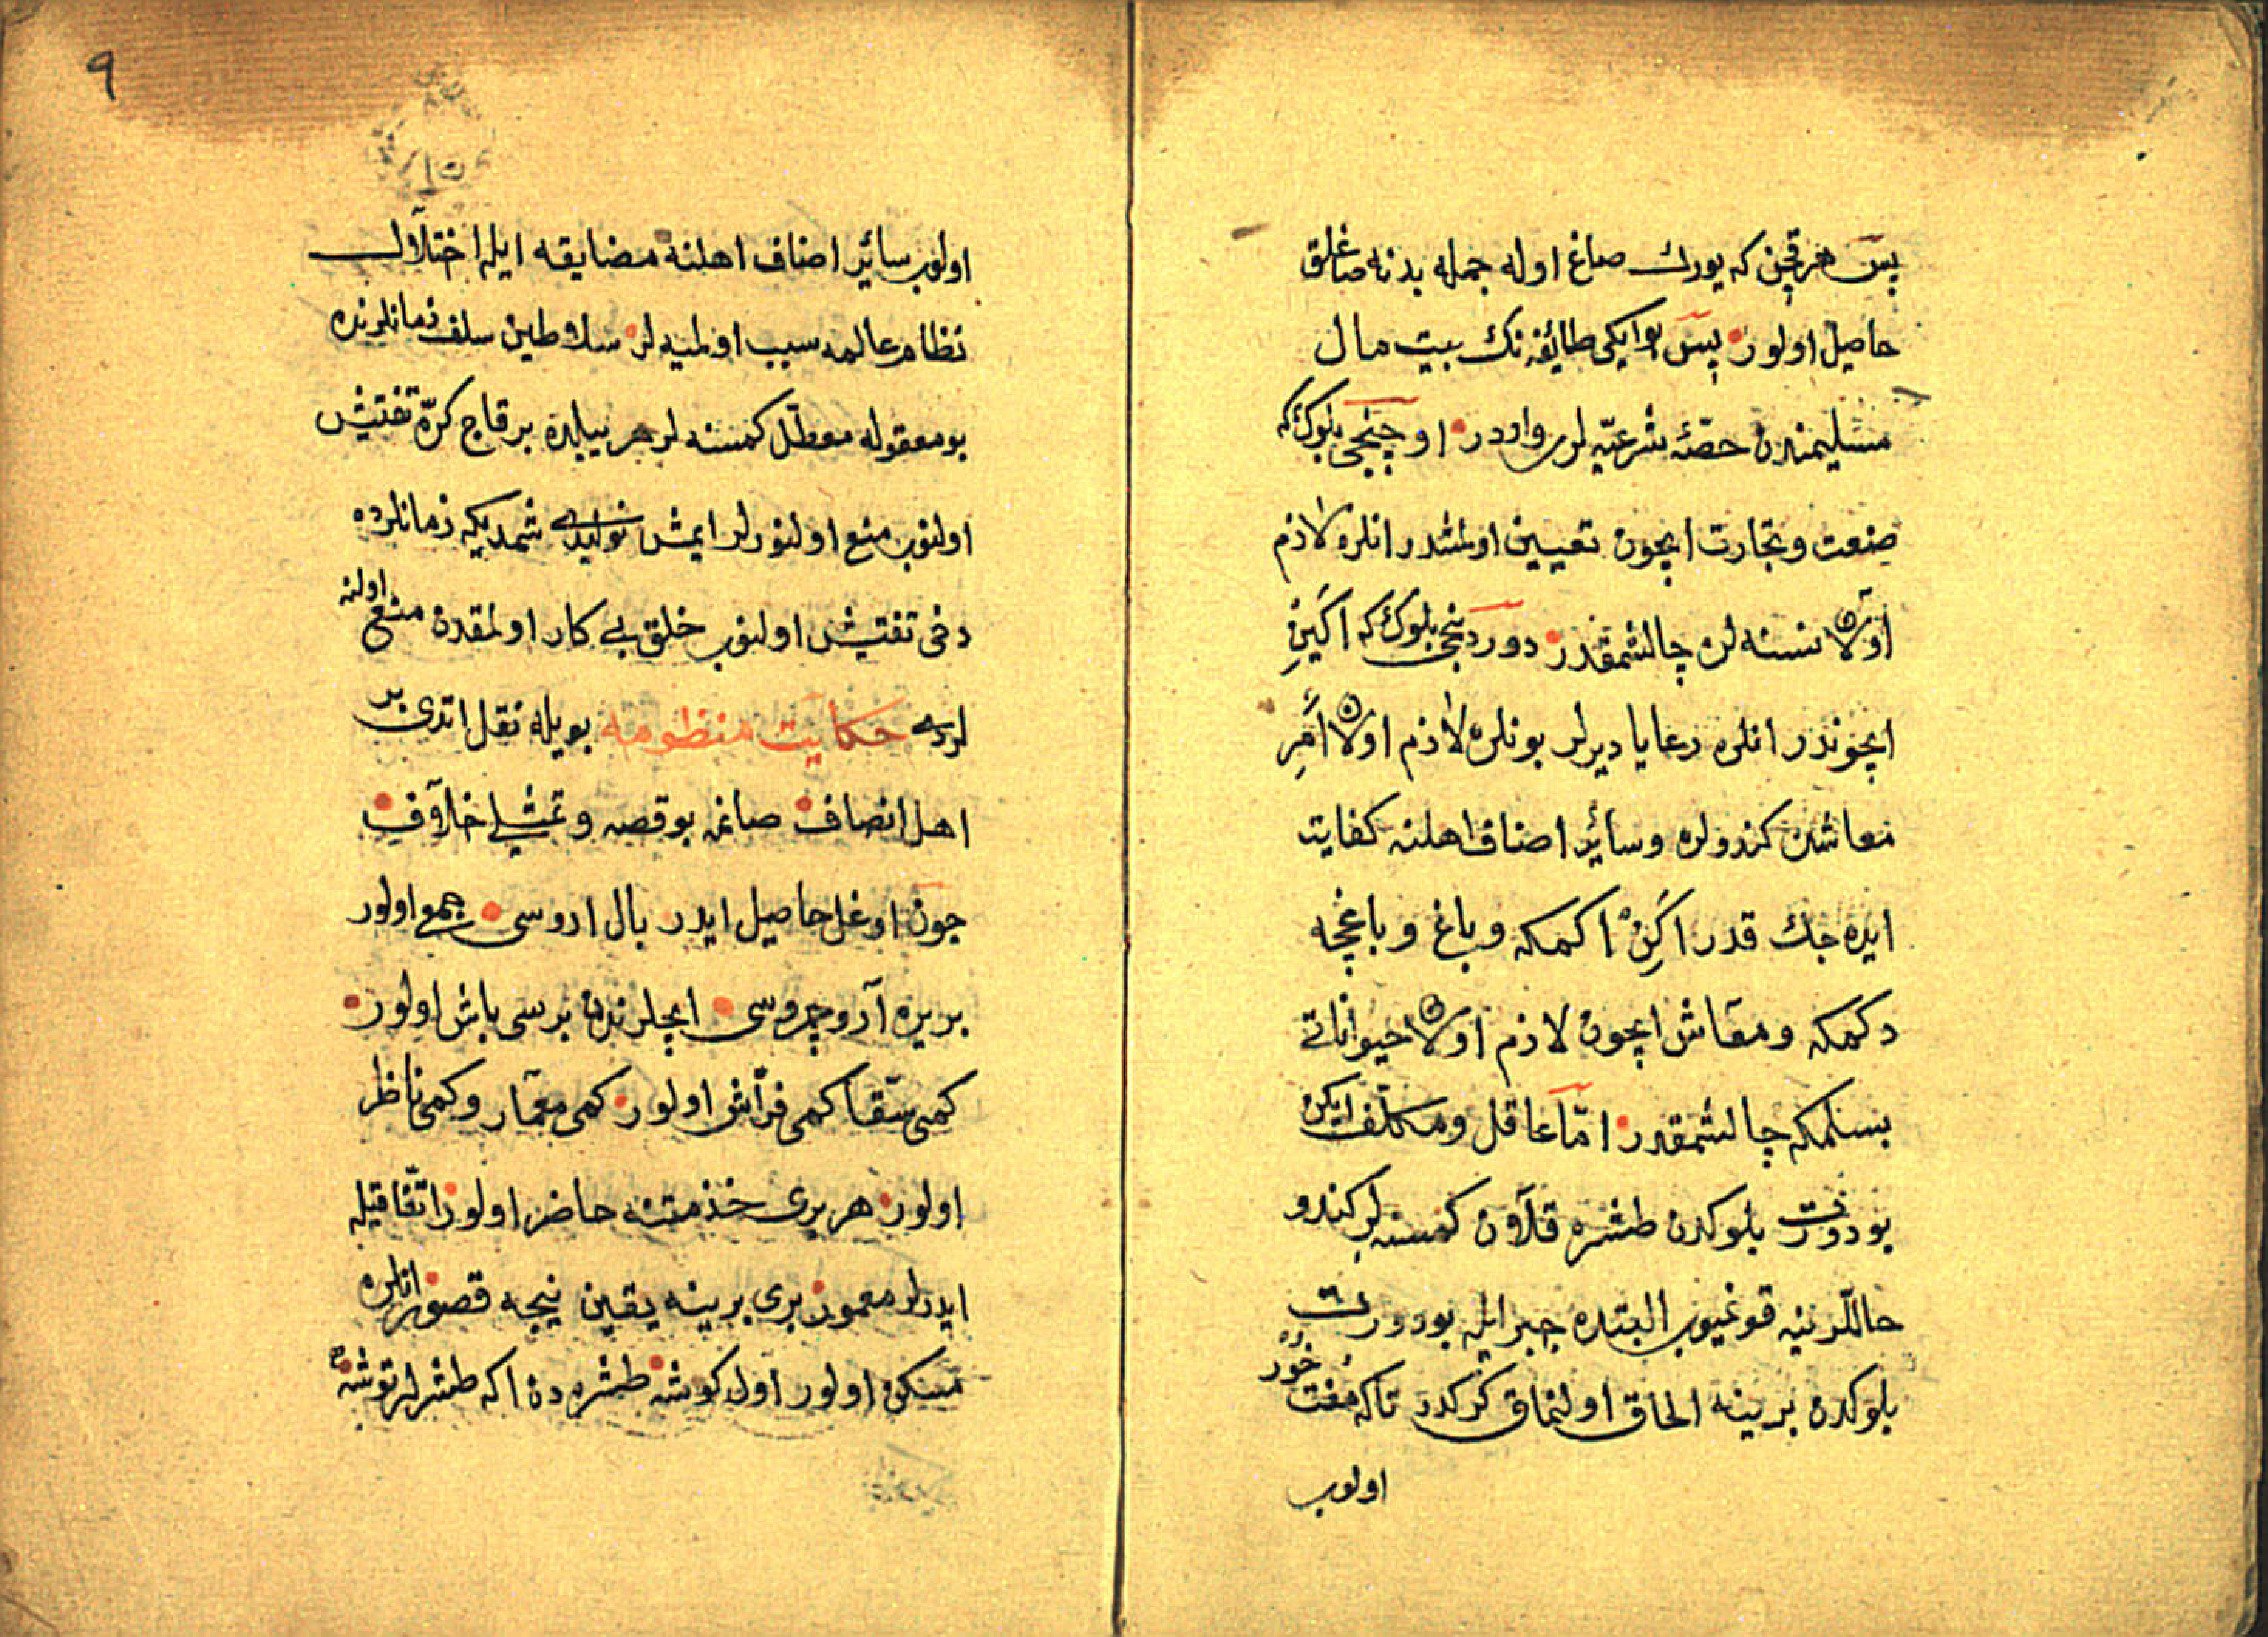 پس هر قچن كه يورك صاغ اوله جمله بدنه صاغلق
حاصل اولور پس بو ايكى طائفه نك بيت مال
مسلميندن حصّۀ شرعيّه لرى واردر اوچنجى بلوك كه
صنعت و تجارت ايچون تعيين اولمشدر انلره لازم
اولان نسنه لره چالشمقدر دوردنجى بلوك كه اكين
ايچوندر انلره رعايا ديرلر بونلره لازم اولان امر
معاشن كندولره و سائر اصناف اهلنه كفايت
ايده جك قدر اكن اكمكه و باغ و باغچه
دكمكه و معاش ايچون لازم اولان حيواناتى
بسلمكه چالشمقدر امّا عاقل و مكلّف ايكن
بو دورت بلوكدن طشره قلان كمسنه لر كندو
حاللرينه قونميوب البتده جبر ايله بو دورت
بلوكدن برينه الحاق اولنماق كركدر تاكه مفت خور
اولوب
٩
اولوب سائر اصناف اهلنه مضايقه ايله اختلال
نظام عالمه سبب اولميه لر سلاطين سلف زمانلرنده
بو مقوله معطّل كمسنه لر هر ييلده بر قاچ كرّه تفتيش
اولنوب منع اولنورلر ايمش نوليدى شمديكه زمانلرده
دخى تفتيش اولنوب خلق بى كار اولمقدن منع اولنه
لردى حكايت منظومه بويله نقل اتدى بر
اهل انصاف صانمه بو قصه و تمثيلى خلاف
چون اوغل حاصل ايدر بال اروسى جمع اولور
بر يره آرو چروسى ايچلرندن برسى باش اولور
كمى سقّا كمى فرّاش اولور كمى معمار و كمى ناظر
اولور هر برى خذمتنه حاضر اولور اتّفاقيله
ايدرلر معمور برى برينه يقين نيجه قصور انلره
مسكن اولور اول كوشه طشره دن اكه طشرلر توشه